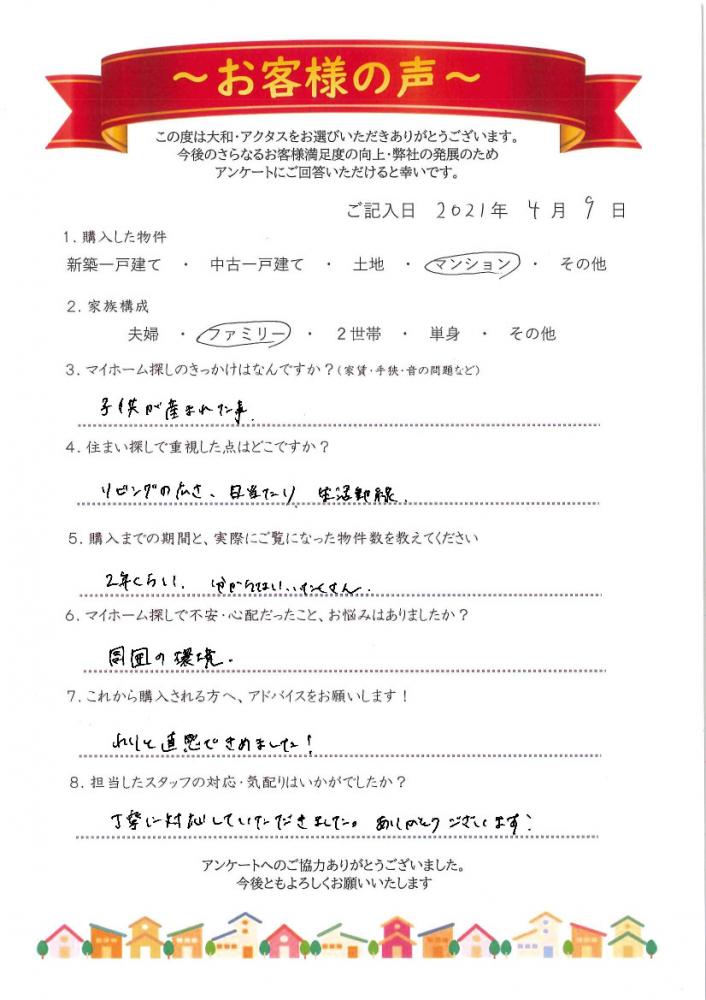 ～お客様の声～
この度は大和・アクタスをお選びいただきありがとうございます。
今後のさらなるお客様満足度の向上・弊社の発展のため
アンケートにご回答いただけると幸いです。
ご記入日 2021年 4月 9日
1. 購入した物件
新築一戸建て ・ 中古一戸建て ・ 土地 ・ マンション ・ その他
2. 家族構成
夫婦 ・ ファミリー ・ 2世帯 ・ 単身 ・ その他
3. マイホーム探しのきっかけはなんですか？(家賃・手狭・音の問題など)
子供が産まれた事.
4. 住まい探しで重視した点はどこですか？
リビングの広さ、日当たり、生活動線.
5. 購入までの期間と、実際にご覧になった物件数を教えてください
2年くらい. 分からない.. たくさん.
6. マイホーム探しで不安・心配だったこと、お悩みはありましたか？
周囲の環境.
7. これから購入される方へ、アドバイスをお願いします！
わりと直感できめました!
8. 担当したスタッフの対応・気配りはいかがでしたか？
丁寧に対応していただきました。ありがとうございます!
アンケートへのご協力ありがとうございました。
今後ともよろしくお願いいたします